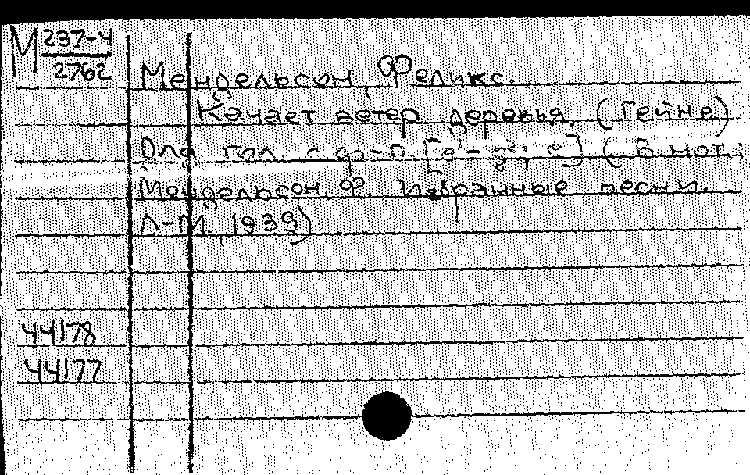 М 237-4
2762
Мендельсон, Феликс.
Качает ветер деревья (Гейне)
Для гол. с ф-п. (В нот.:
Мендельсон, Ф. Избранные песни.
Л-М, 1939)
44178
44177